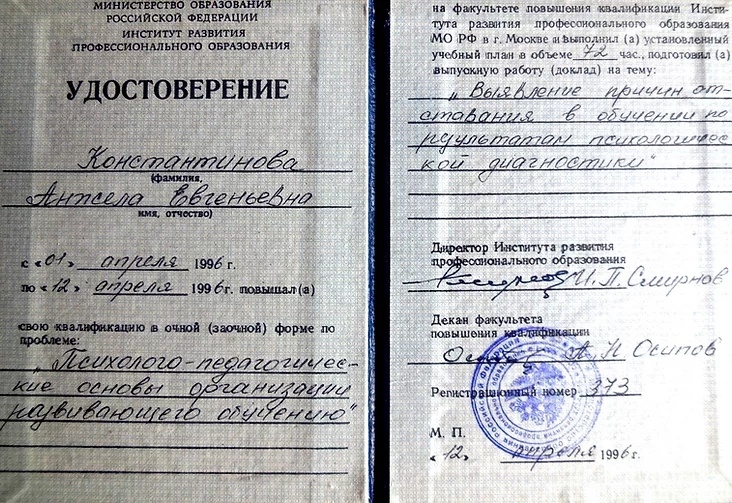 МИНИСТЕРСТВО ОБРАЗОВАНИЯ
РОССИЙСКОЙ ФЕДЕРАЦИИ
ИНСТИТУТ РАЗВИТИЯ
ПРОФЕССИОНАЛЬНОГО ОБРАЗОВАНИЯ
УДОСТОВЕРЕНИЕ
Константинова
(фамилия,
Анжела Евгеньевна
имя, отчество)
с «01» апреля 1996 г.
по «12» апреля 1996 г. повышал (а)
свою квалификацию в очной (заочной) форме по
проблеме:
„Психолого-педагогичес-
кие основы организации
развивающего обучению"
на факультете повышения квалификации Инсти-
тута развития профессионального образования
МО РФ в г. Москве и выполнил (а) установленный
учебный план в объеме 72 час., подготовил (а)
выпускную работу (доклад) на тему:
„Выявление причин от-
ставания в обучении по
результатам психологичес
кой диагностики"
Директор Института развития
профессионального образования
И. П. Смирнов
Декан факультета
повышения квалификации
А Н Осипов
Регистрационный номер 373
М. П.
«12» апреля 1996 г.